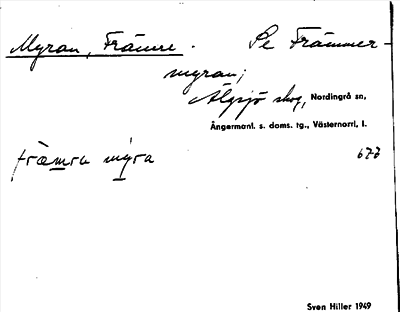 Myran, Främre. Se Främmer-
myran;
Älgsjö skog, Nordingrå sn,
Ångermanl. s. doms. tg., Västernorrl. l.
främra myra 678
Sven Hiller 1949